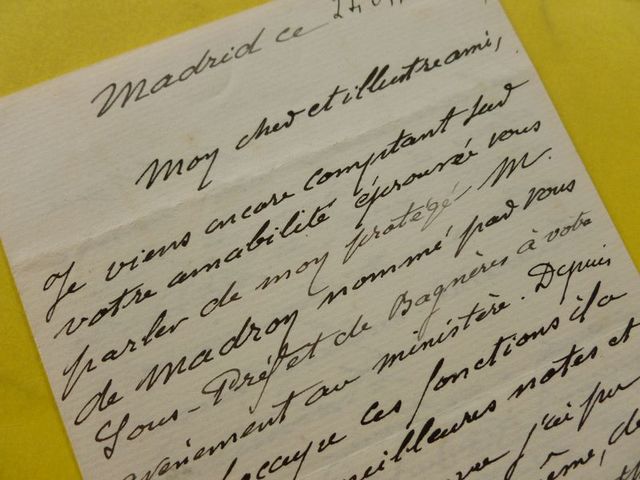 Madrid ce 24
Moy cher et illustre ami,
Je viens encore comptant sur
votre amabilité éprouvée vous
parler de moy protégé M.
de Madroy nommé par vous
Sous-Préfet de Bagnères à votre
avènement au ministère. Depuis
occupe ces fonctions il a
meilleures notes et
j'ai pu
même, de